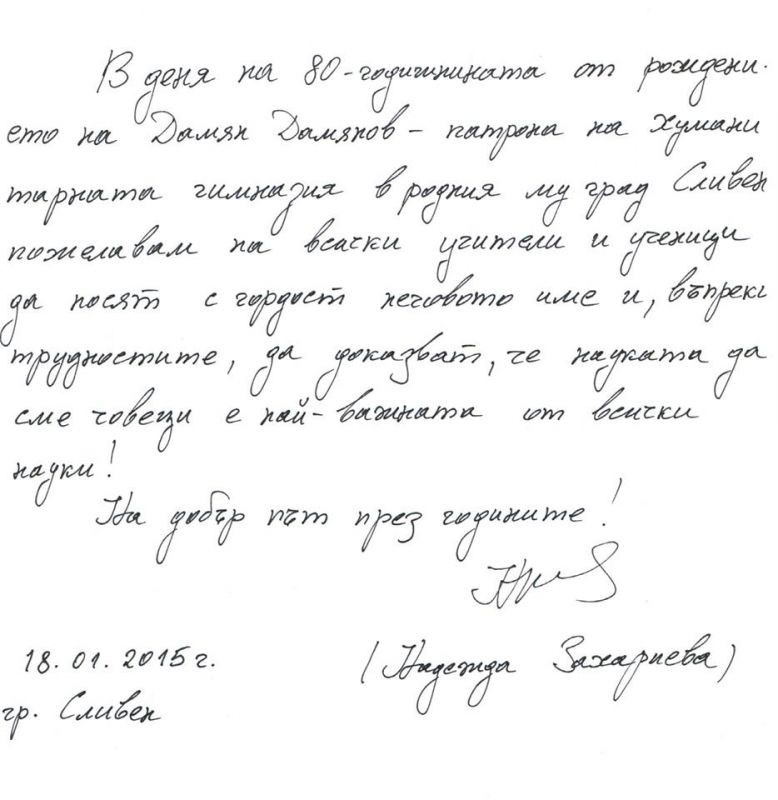 В деня на 80-годишнината от рождени-
ето на Дамян Дамянов - патрона на Хумани
тарната гимназия в родния му град Сливен
пожелавам на всички учители и ученици
да носят с гордост неговото име и, въпреки
трудностите, да доказват, че науката да
сме човеци е най-важната от всички
науки!
На добър път през годините!
18.01.2015 г. (Надежда Захариева)
гр. Сливен